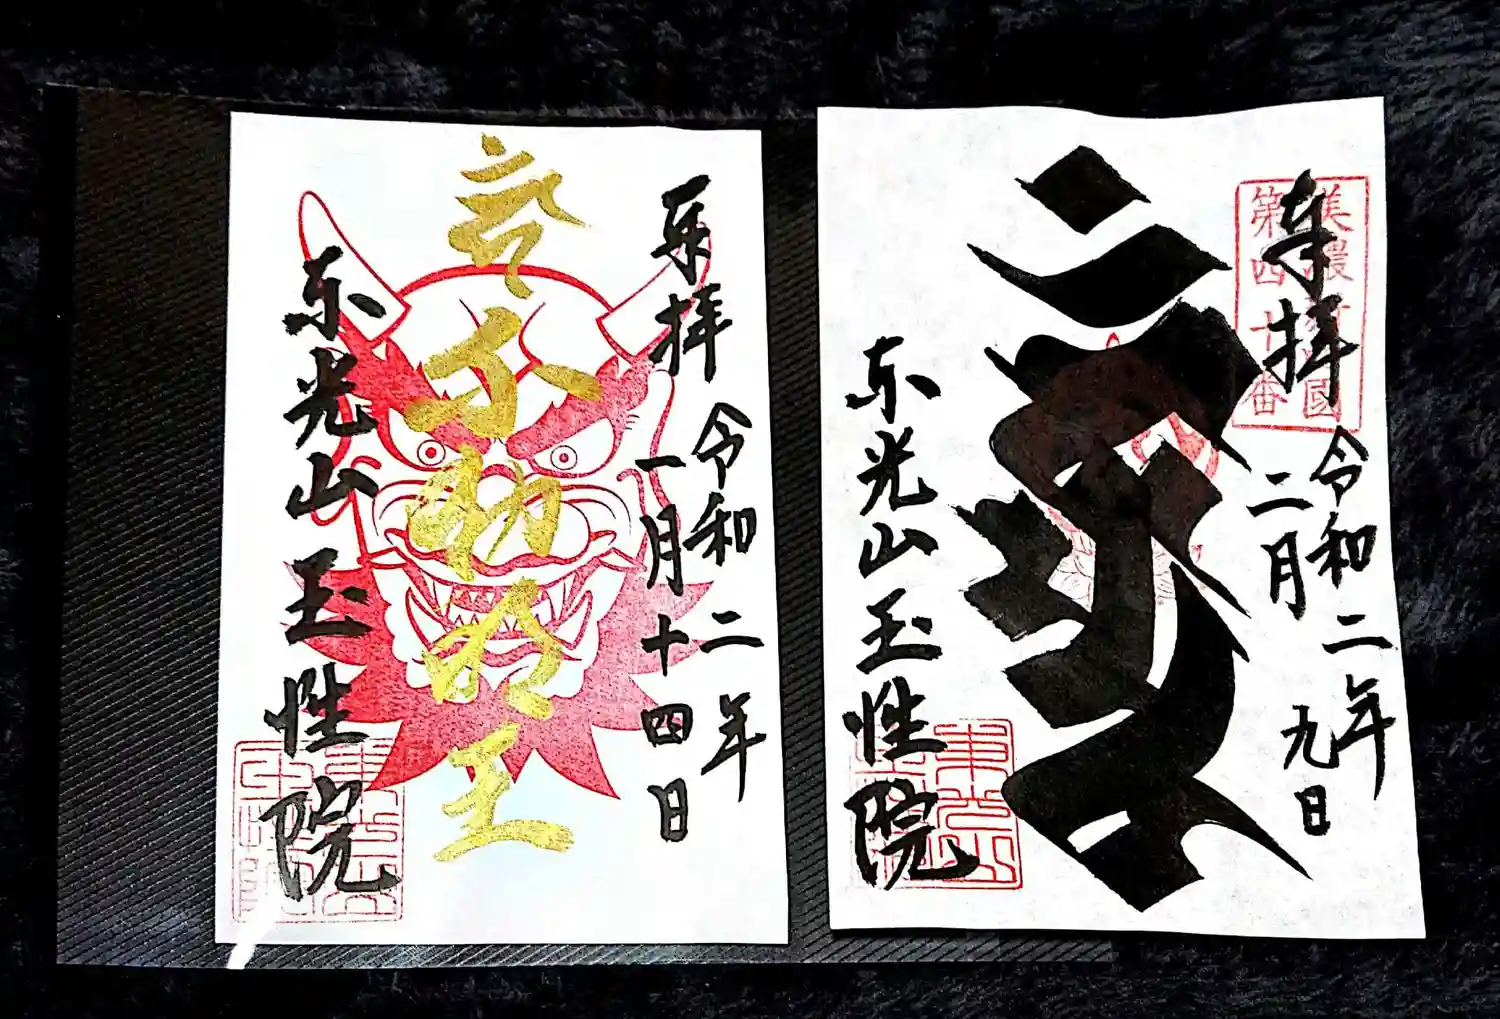 奉拝
令和二年
一月十四日
不動明王
東光山
玉性院
美濃西国
第四十番
奉拝
令和二年
二月九日
東光山
玉性院